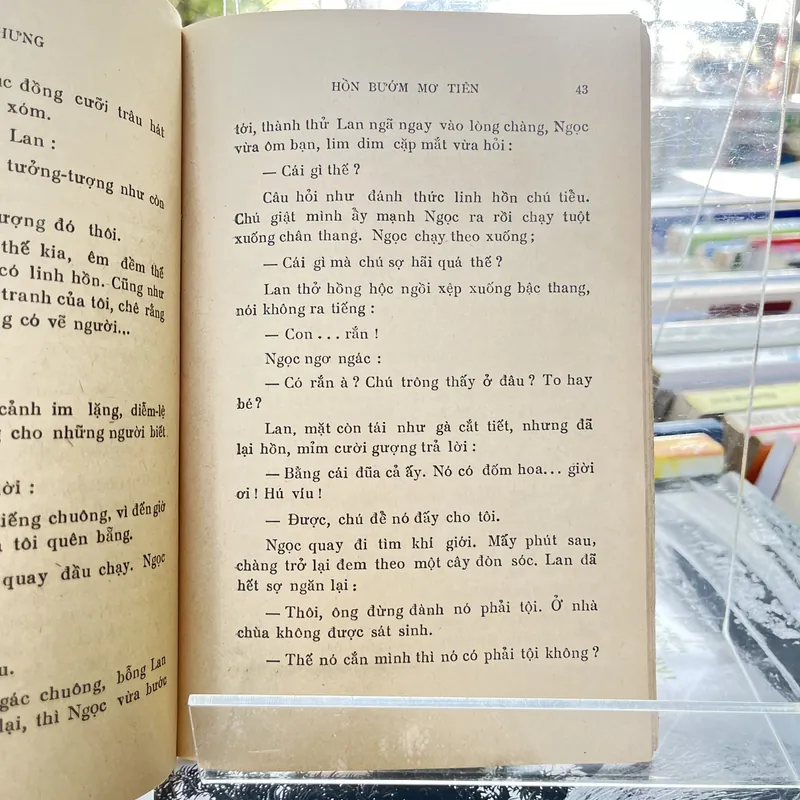 HƯNG
đồng cưỡi trâu hát
xóm.
Lan :
tưởng-tượng như còn
đó thôi.
thế kia, êm đềm thế
có linh hồn. Cũng như
tranh của tôi, chê rằng
có vẽ người...
cảnh im lặng, diễm-lệ
cho những người biết
tiếng chuông, vì đến giờ
tôi quên bẵng.
quay đầu chạy. Ngọc
gác chuông, bỗng Lan
lại, thì Ngọc vừa bước
HỒN BƯỚM MƠ TIÊN 43
tới, thành thử Lan ngã ngay vào lòng chàng, Ngọc
vừa ôm bạn, lim dim cặp mắt vừa hỏi :
— Cái gì thế ?
Câu hỏi như đánh thức linh hồn chú tiểu.
Chú giật mình ẩy mạnh Ngọc ra rồi chạy tuột
xuống chân thang. Ngọc chạy theo xuống ;
— Cái gì mà chú sợ hãi quá thế ?
Lan thở hồng hộc ngồi xệp xuống bậc thang,
nói không ra tiếng :
— Con ... rắn !
Ngọc ngơ ngác :
— Có rắn à ? Chú trông thấy ở đâu ? To hay
bé ?
Lan, mặt còn tái như gà cắt tiết, nhưng đã
lại hồn, mỉm cười gượng trả lời :
— Bằng cái đũa cả ấy. Nó có đốm hoa... giời
ơi ! Hú víu !
— Được, chú để nó đấy cho tôi.
Ngọc quay đi tìm khí giới. Mấy phút sau,
chàng trở lại đem theo một cây đòn sóc. Lan đã
hết sợ ngăn lại :
— Thôi, ông đừng đành nó phải tội. Ở nhà
chùa không được sát sinh.
— Thế nó cắn mình thì nó có phải tội không ?